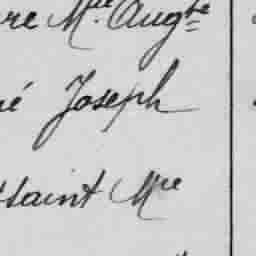 re Mlle Augte
né Joseph
tsaint Mie